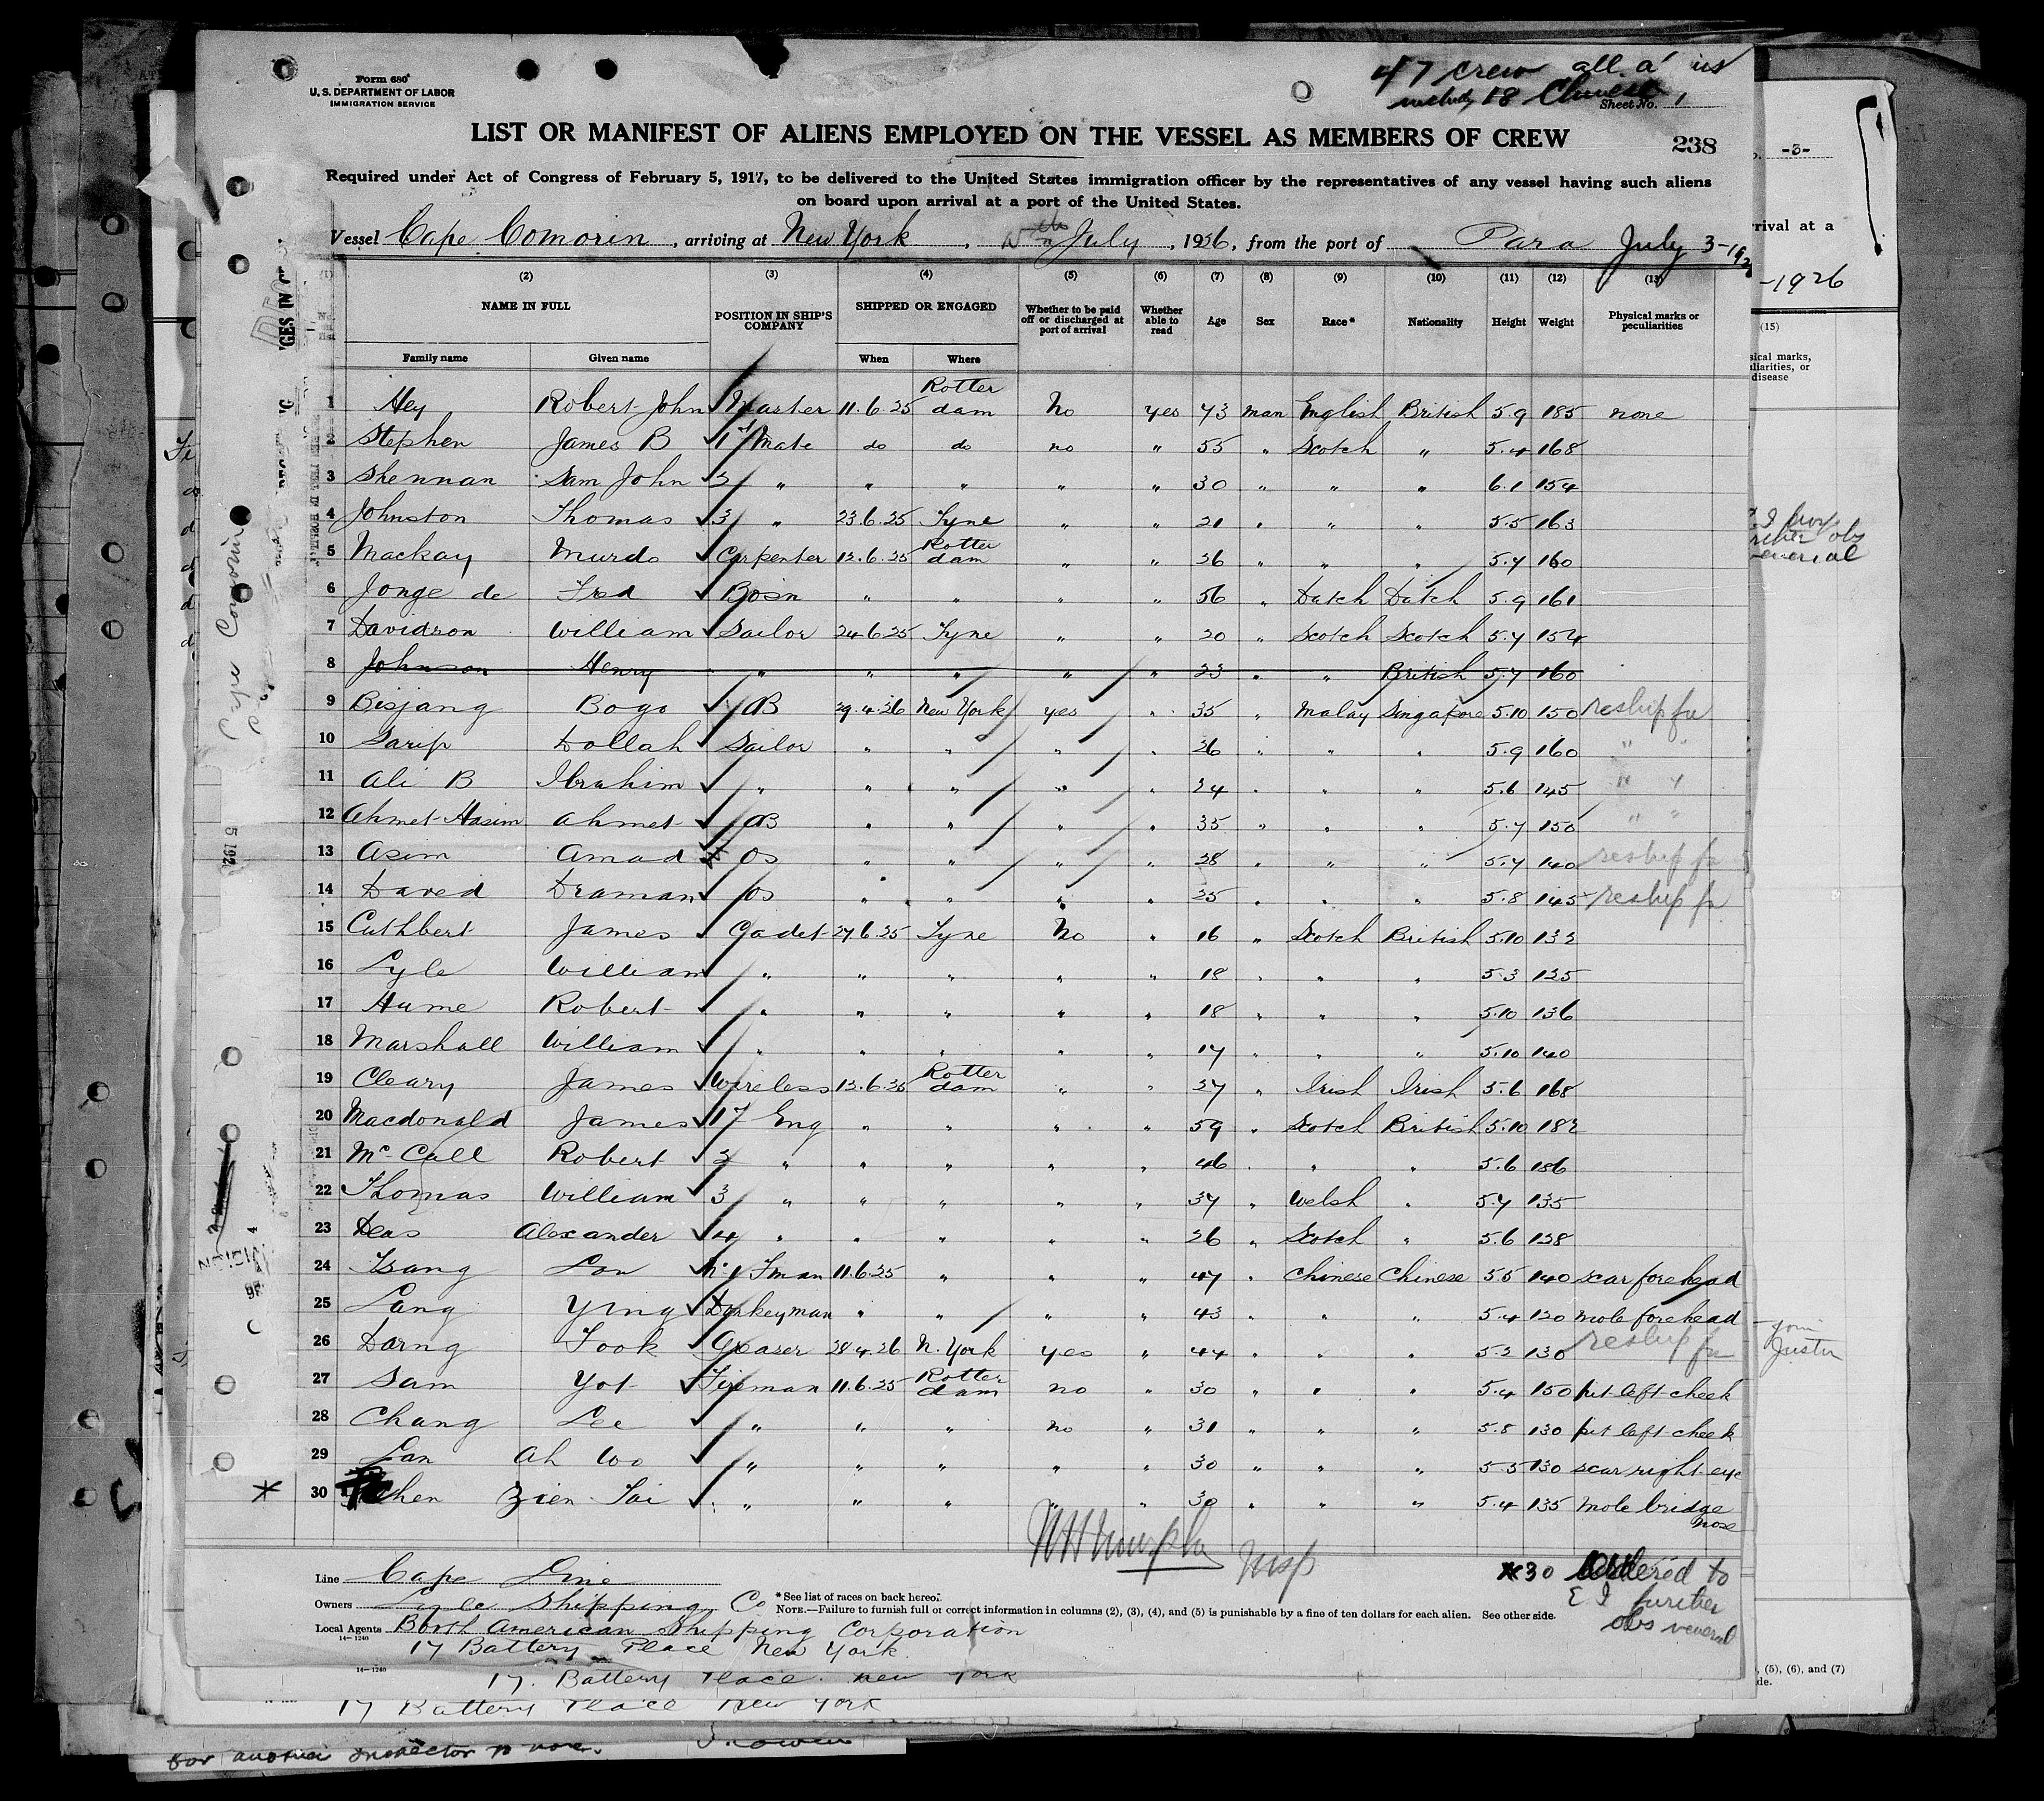 47 crew all a' us
Form 680
U. S. DEPARTMENT OF LABOR
IMMIGRATION SERVICE
18 Chinese
Sheet No. 1
LIST OR MANIFEST OF ALIENS EMPLOYED ON THE VESSEL AS MEMBERS OF CREW
238
Required under Act of Congress of February 5, 1917, to be delivered to the United States immigration officer by the representatives of any vessel having such aliens
on board upon arrival at a port of the United States.
Vessel Cape Comorin, arriving at New York, July, 1926, from the port of Para July 3-192
(1) (2) (3) (4) (5) (6) (7) (8) (9) (10) (11) (12) (13)
NAME IN FULL POSITION IN SHIP'S COMPANY SHIPPED OR ENGAGED Whether to be paid off or discharged at port of arrival Whether able to read Age Sex Race* Nationality Height Weight Physical marks or peculiarities
Family name Given name When Where
1 Hey Robert John Master 11.6.25 Rotterdam No yes 43 man English British 5.9 185 none
2 Stephen James B 1st Mate do do no " 55 " Scotch " 5.4 168
3 Shennan Sam John 2 " " " " " 30 " " " 6.1 154
4 Johnston Thomas 3 " 23.6.25 Tyne " " 21 " " " 5.5 163
5 Mackay Murdo Carpenter 12.6.25 Rotterdam " " 26 " " " 5.7 160
6 Jonge de Fred Bosn " " " " 56 " Dutch Dutch 5.9 161
7 Davidson William Sailor 24.6.25 Tyne " " 20 " Scotch Scotch 5.7 154
8 Johnson Henry " " " " " 23 " " British 5.7 160
9 Bisjang Bogo AB 29.4.26 New York yes " 35 " Malay Singapore 5.10 150 reship fn
10 Sarip Dollah Sailor " " " " 26 " " " 5.9 160 " "
11 Ali B Ibrahim " " " " " 24 " " " 5.6 145 " "
12 Ahmet Hasim Ahmet AB " " " " 35 " " " 5.7 150 " "
13 Asim Amad OS " " " " 28 " " " 5.7 140 reship fn
14 Daved Draman OS " " " " 25 " " " 5.8 145 reship fn
15 Cuthbert James Cadet 27.6.25 Tyne No " 16 " Scotch British 5.10 132
16 Lyle William " " " " " 18 " " " 5.3 125
17 Hume Robert " " " " " 18 " " " 5.10 136
18 Marshall William " " " " " 17 " " " 5.10 140
19 Cleary James Wireless 12.6.25 Rotterdam " " 27 " Irish Irish 5.6 168
20 Macdonald James 1st Eng " " " " 59 " Scotch British 5.10 182
21 McCall Robert 2 " " " " " 46 " " " 5.6 186
22 Thomas William 3 " " " " " 37 " Welsh " 5.7 135
23 Deas Alexander 4 " " " " " 26 " Scotch " 5.6 128
24 Tsang Lon No 1 Fman 11.6.25 " " " 47 " Chinese Chinese 5.5 140 scar forehead
25 Lang Ying Donkeyman " " " " 43 " " " 5.4 120 mole forehead
26 Darng Fook Greaser 28.4.26 N. York yes " 44 " " " 5.2 130 reship fn
27 Sam Yot Fireman 11.6.25 Rotterdam no " 30 " " " 5.4 150 pit left cheek
28 Chang Lee " " " no " 31 " " " 5.8 130 pit left cheek
29 Lan Ah Wo " " " " " 30 " " " 5.5 130 scar right eye
30 Chen Zien Tai " " " " " 30 " " " 5.4 135 mole bridge nose
Insp
Line Cape Line
Owners Lyle Shipping Co
*See list of races on back hereof.
NOTE.—Failure to furnish full or correct information in columns (2), (3), (4), and (5) is punishable by a fine of ten dollars for each alien. See other side.
Local Agents North American Shipping Corporation
14—1240
17 Battery Place New York
30 Ordered to
E I further
obs venereal
14—1240
17. Battery Place. New York
17 Battery Place New York
for another Inspector
Cape Comorin
5 192
-3-
rival at a
-1926
(15)
sical marks,
liarities, or
disease
(5), (6), and (7)
de.